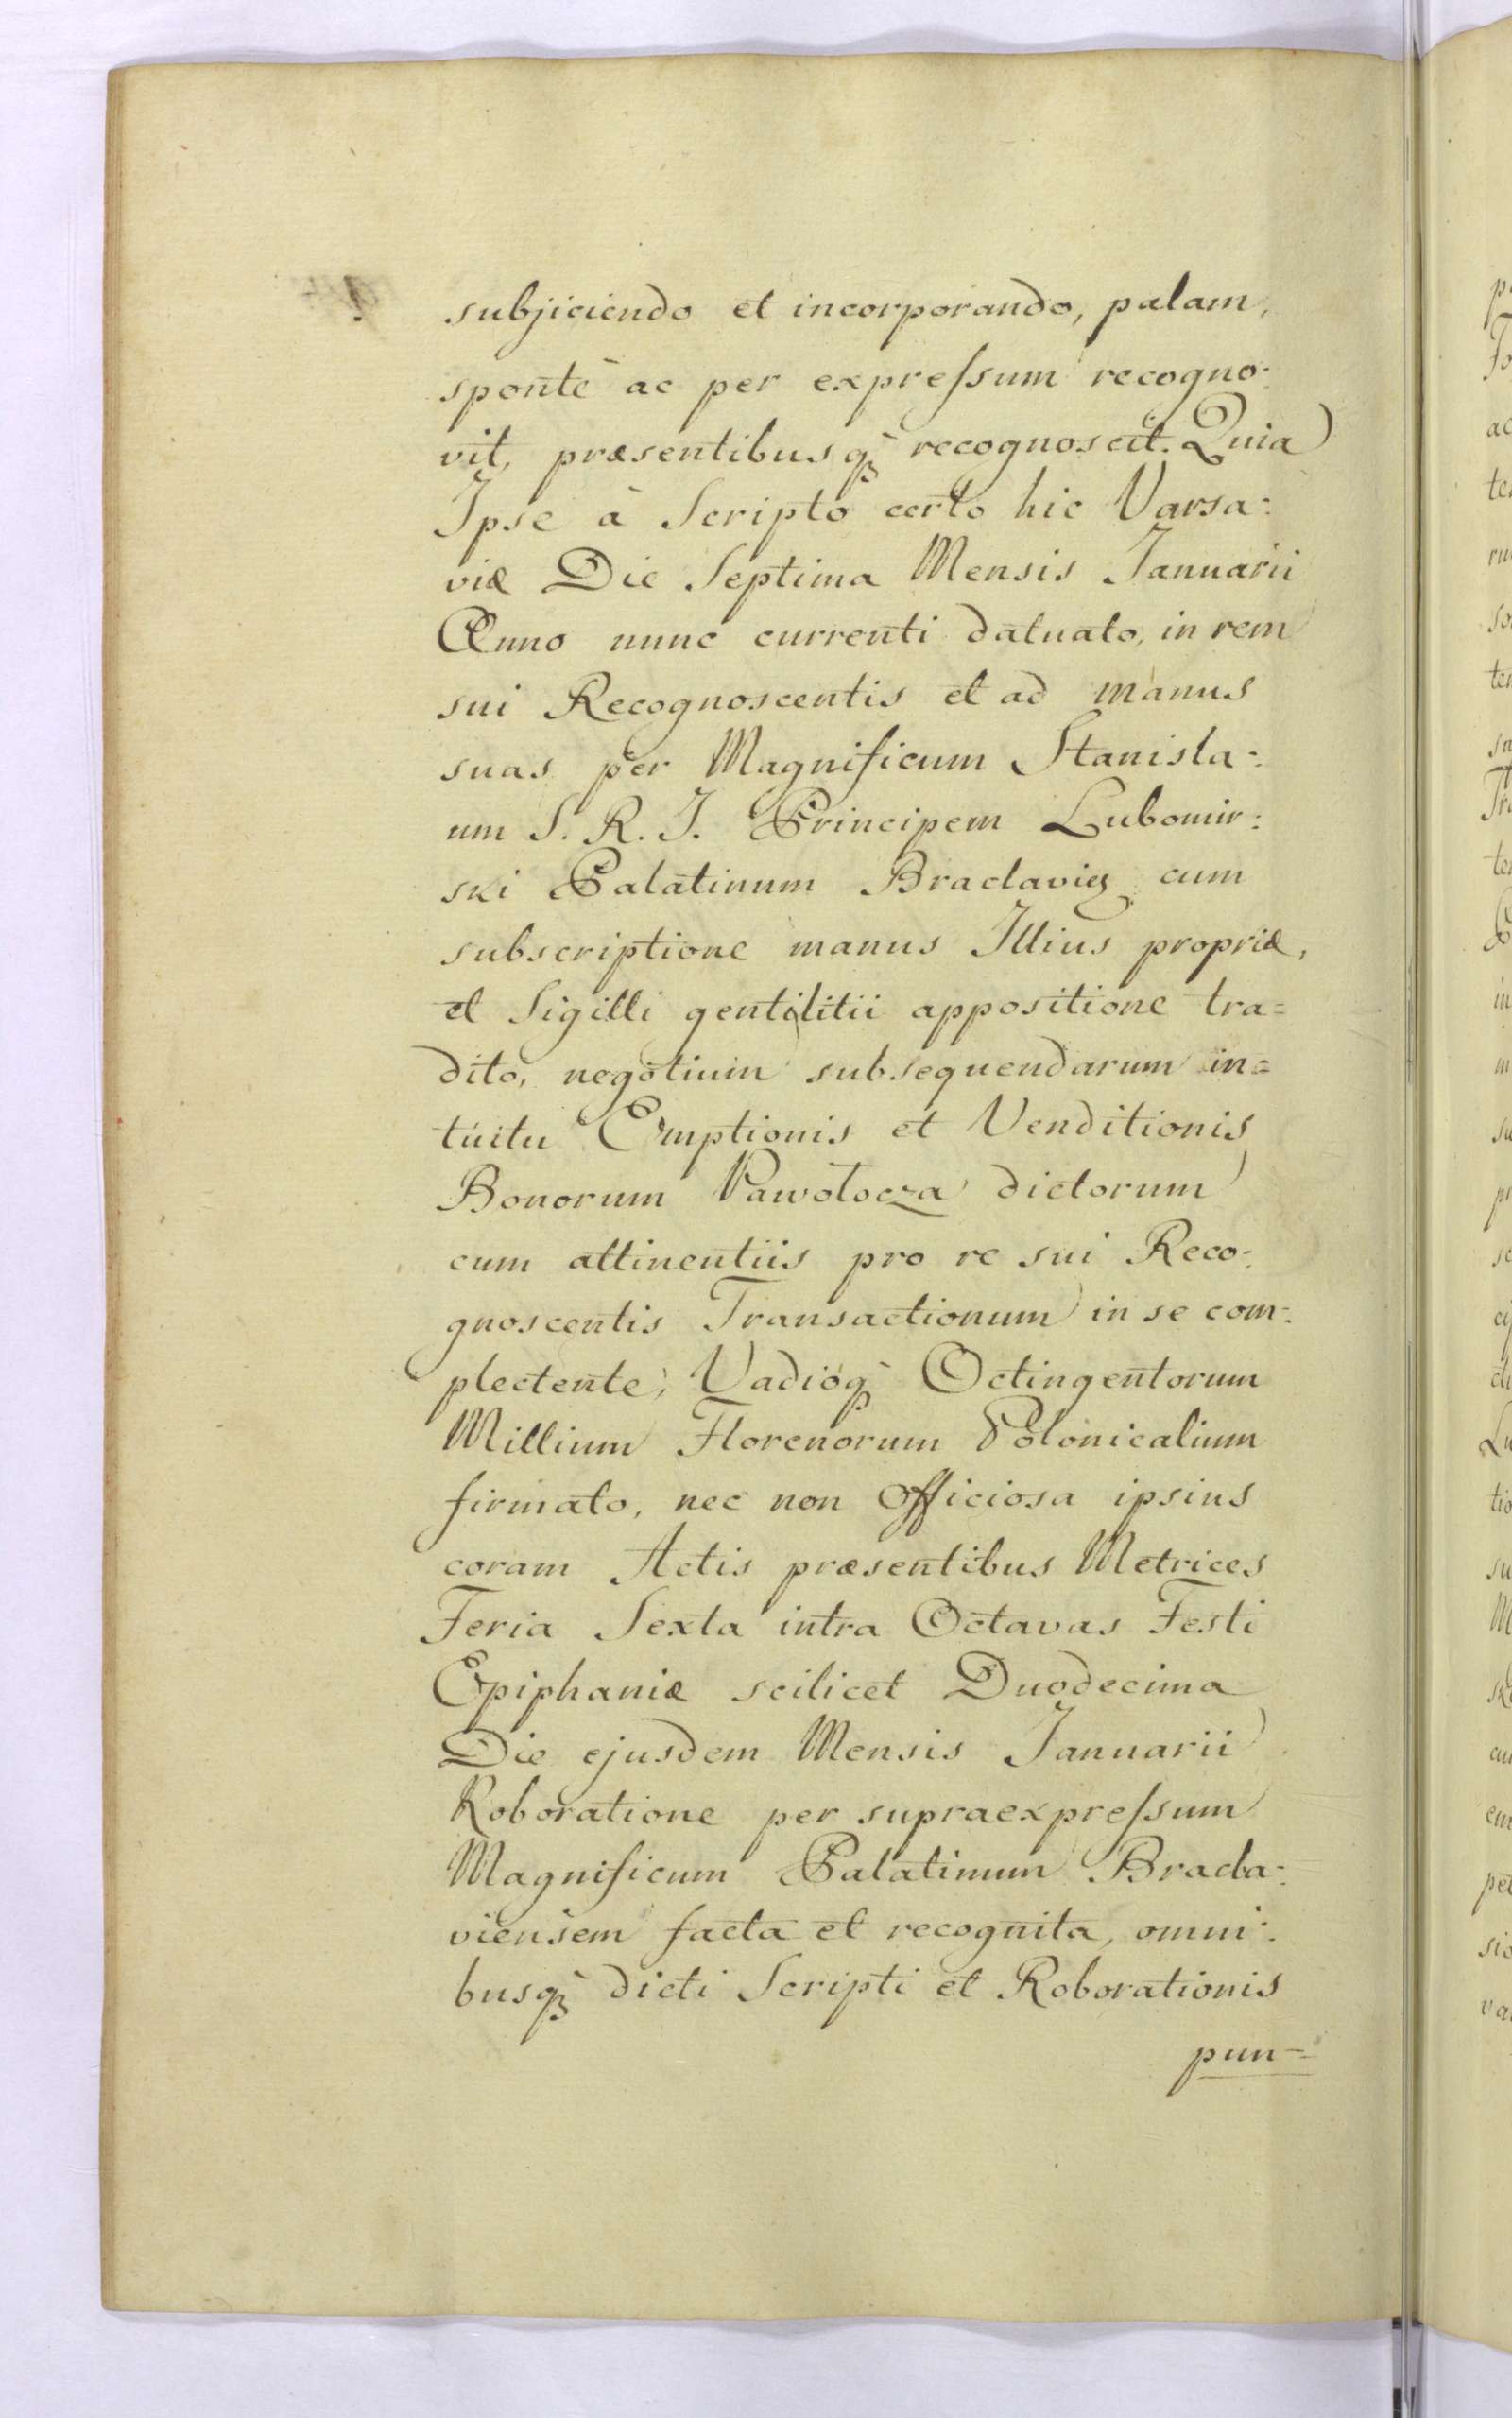 subjiciendo et incorporando, palam,
spontè ac per expreſsum recogno-
vit, præsentibusq̀ȝ recognoscit. Quia
Ipse à Scripto certo hic Varsa-
viæ Die Septima Mensis Januarii
Anno nunc currenti datuato, in rem
sui Recognoscentis et ad manus
suas per Magnificum Stanisla-
um S. R. J. Principem Lubomir-
ski Palatinum Braclaviȩ cum
subscriptione manus Illius propriæ,
et Sigilli gentilitii appositione tra=
dito, negotium subsequendarum in=
tuitu Emptionis et Venditionis
Bonorum Pawołocza dictorum
cum attinentiis pro re sui Reco-
gnoscentis Transactionum in se com-
plectente, Vadioq̀ȝ Octingentorum
Millium Florenorum Polonicalium
firmato, nec non Officiosa ipsius
coram Actis præsentibus Metrices
Feria Sexta intra Octavas Festi
Epiphaniæ scilicet Duodecima
Die ejusdem Mensis Januarii
Roboratione per supraexpreſsum
Magnificum Palatinum Bracla-
viensem facta et recognita, omni-
busq̀ȝ dicti Scripti et Roborationis
pun=